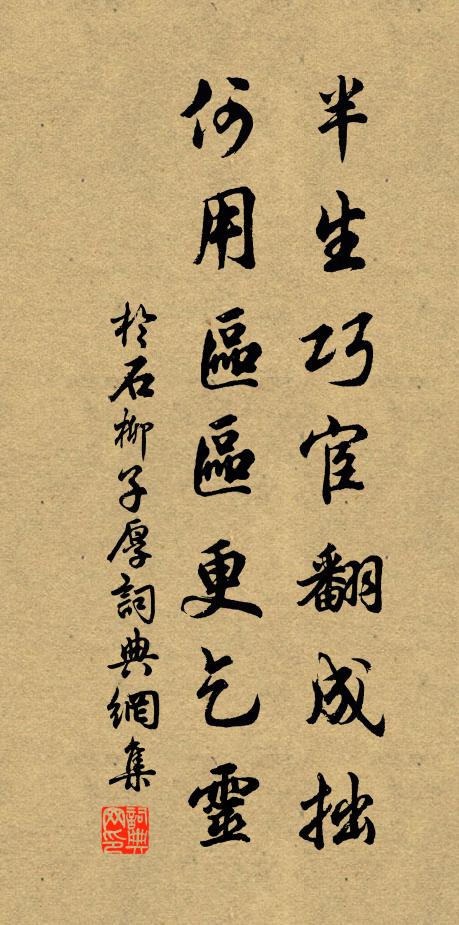 半生巧宦翻成拙
何用區區更乞靈
於石柳子厚詞典網集
詞典网印